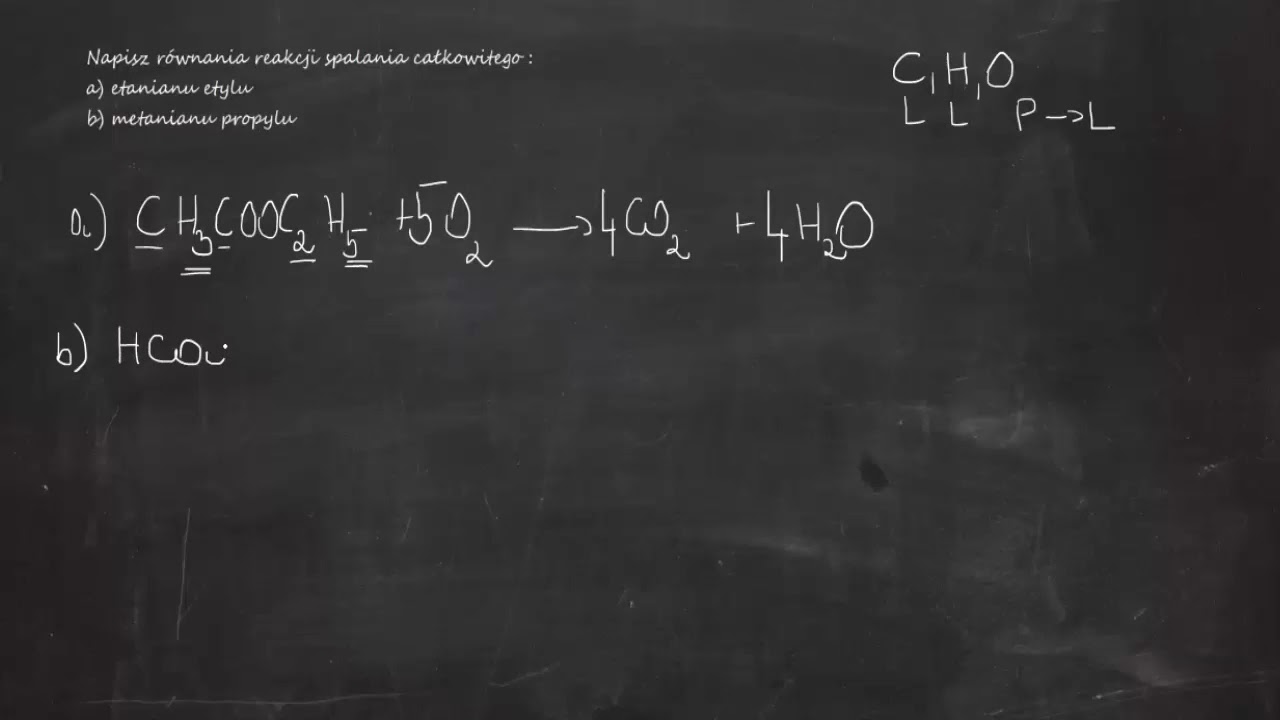 Napisz równania reakcji spalania całkowitego :
a) etanianu etylu
b) metanianu propylu
C, H, O
L L P → L
a) CH₃COOC₂H₅ + 5O₂ → 4CO₂ + 4H₂O
b) HCO